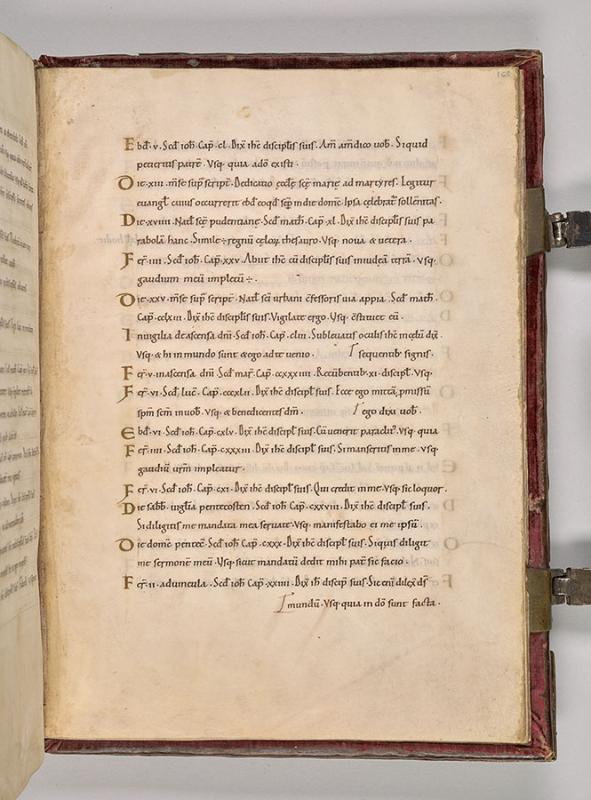 168
Ebd̃. v. Scd̃ ioh̃. Cap̃. cl. Dix̃ ihc̄ disciplis suis. Am̃ am̃ dico uob̃. Siquid
petieritis patrē. Vsq. quia a dō existi.
Die. xiii. m̃se sup̃ script̃. Dedicatio eccłę scę̄ marię ad martyres. Legitur
euangł. cuius occurrerit ebd̃ eo qd̃ sēp in die domĉ. ipsa celebrat̃ sollēnitas.
Die. xviiii. Natł. scę̄ pudentianę. Scd̃ math̃. Cap̃. xl. Dix̃ ihc̄ disciplis suis pa
rabolā hanc. Simile ÷ regnū cęloꝝ. thesauro. Vsq. noua & uetera.
Fer̃. iiii. Scd̃ ioh̃. Cap̃. xxv. Abiit ihc̄ cū disciplis suis in iudeā terrā. Vsq.
gaudium meū impletū ÷.
Die. xxv. m̃se sup̃ script̃. Natł. scī urbani c̄fessoris uia appia. Scd̃ math̃.
Cap̃. cclxiii. Dix̃ ihc̄ disciplis suis. Vigilate ergo. Vsq. c̄stituet eū.
In uigilia de ascensa dn̄i. Scd̃ ioh̃. Cap̃. cliii. Subleuatis oculis ihc̄ in cęlū dix̃.
Vsq. & hi in mundo sunt & ego ad te uenio. sequentib' signis.
Fer̃. v. in ascensa dn̄i. Scd̃ mar̃. Cap̃. ccxxxiiii. Recūbentib'. xi. discipł. Vsq.
Fer̃. vi. Scd̃ luc̃. Cap̃. cccxlii. Dix̃ ihc̄ discipł suis. Ecce ego mittā. p̱missū
sp̄m sc̄m in uob̃. Vsq. & benedicentes dm̄. ego dixi uob̃.
Ebd̃. vi. Scd̃ ioh̃. Cap̃. cxlv. Dix̃ ihc̄ discipł suis. Cū uenerit paraclit'. Vsq. quia
Fer̃. iiii. Scd̃ ioh̃. Cap̃. cxxxiii. Dix̃ ihc̄ discipł suis. Si manseritis in me. Vsq.
gaudiū ur̄m impleatur.
Fer̃. vi. Scd̃ ioh̃. Cap̃. cxi. Dix̃ ihc̄ discipł suis. Qui credit in me. Vsq. sic loquor.
Die sabb̃. uiglia pentecosten. Scd̃ ioh̃. Cap̃. cxxviii. Dix̃ ihc̄ discipł suis.
Si diligitis me mandata mea seruate. Vsq. manifestabo ei me ipsū.
Die domĉ. pentec̃. Scd̃ ioh̃. Cap̃. cxxx. Dix̃ ihc̄ discipł suis. Siquis diligit
me sermonē meū. Vsq. sicut mandatū dedit mihi pat̃ sic facio.
Fer̃. ii. ad uincula. Scd̃ ioh̃. Cap̃. xxiiii. Dix̃ ih̄ discip̃ suis. Sic eñ dilex̃ d̄s
mundū. Vsq. quia in dō sunt facta.